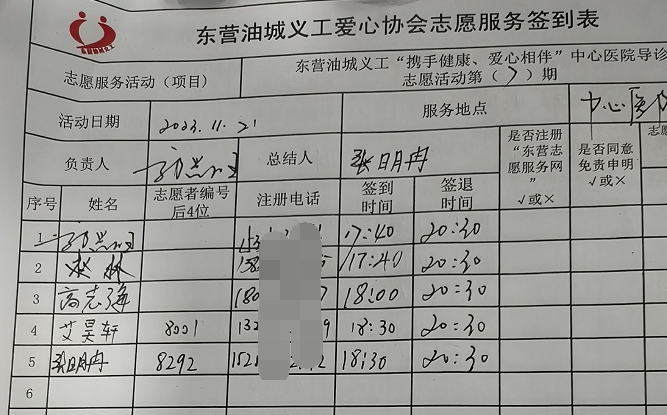 东营油城义工爱心协会志愿服务签到表
志愿服务活动（项目） 东营油城义工“携手健康、爱心相伴”中心医院导诊
志愿活动第（7）期
活动日期 2023.11.21 服务地点 中心医院
负责人 总结人 张日月冉 是否注册“东营志愿服务网”√或× 是否同意免责申明√或× 志愿
序号 姓名 志愿者编号后4位 注册电话 签到时间 签退时间
1 17:40 20:30
2 林 17:40 20:30
3 高志强 180 18:00 20:30
4 艾昊轩 8001 132 9 18:30 20:30
5 张日月冉 8292 152 2 18:30 20:30
6